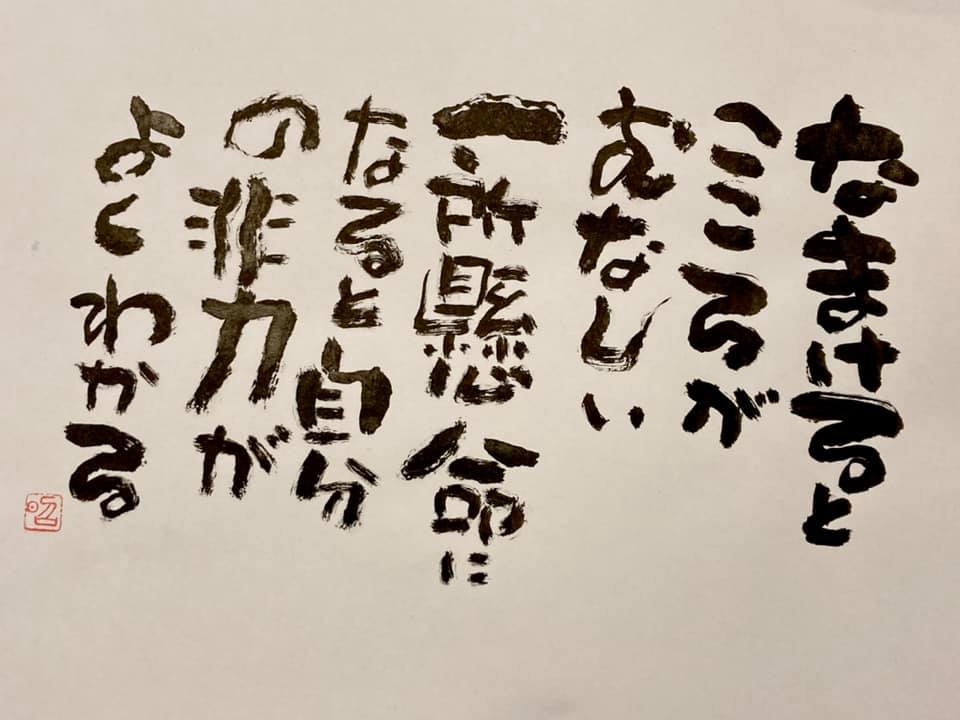 なまけると
こころが
むなしい
一所懸命に
なると自分
の非力が
よくわかる